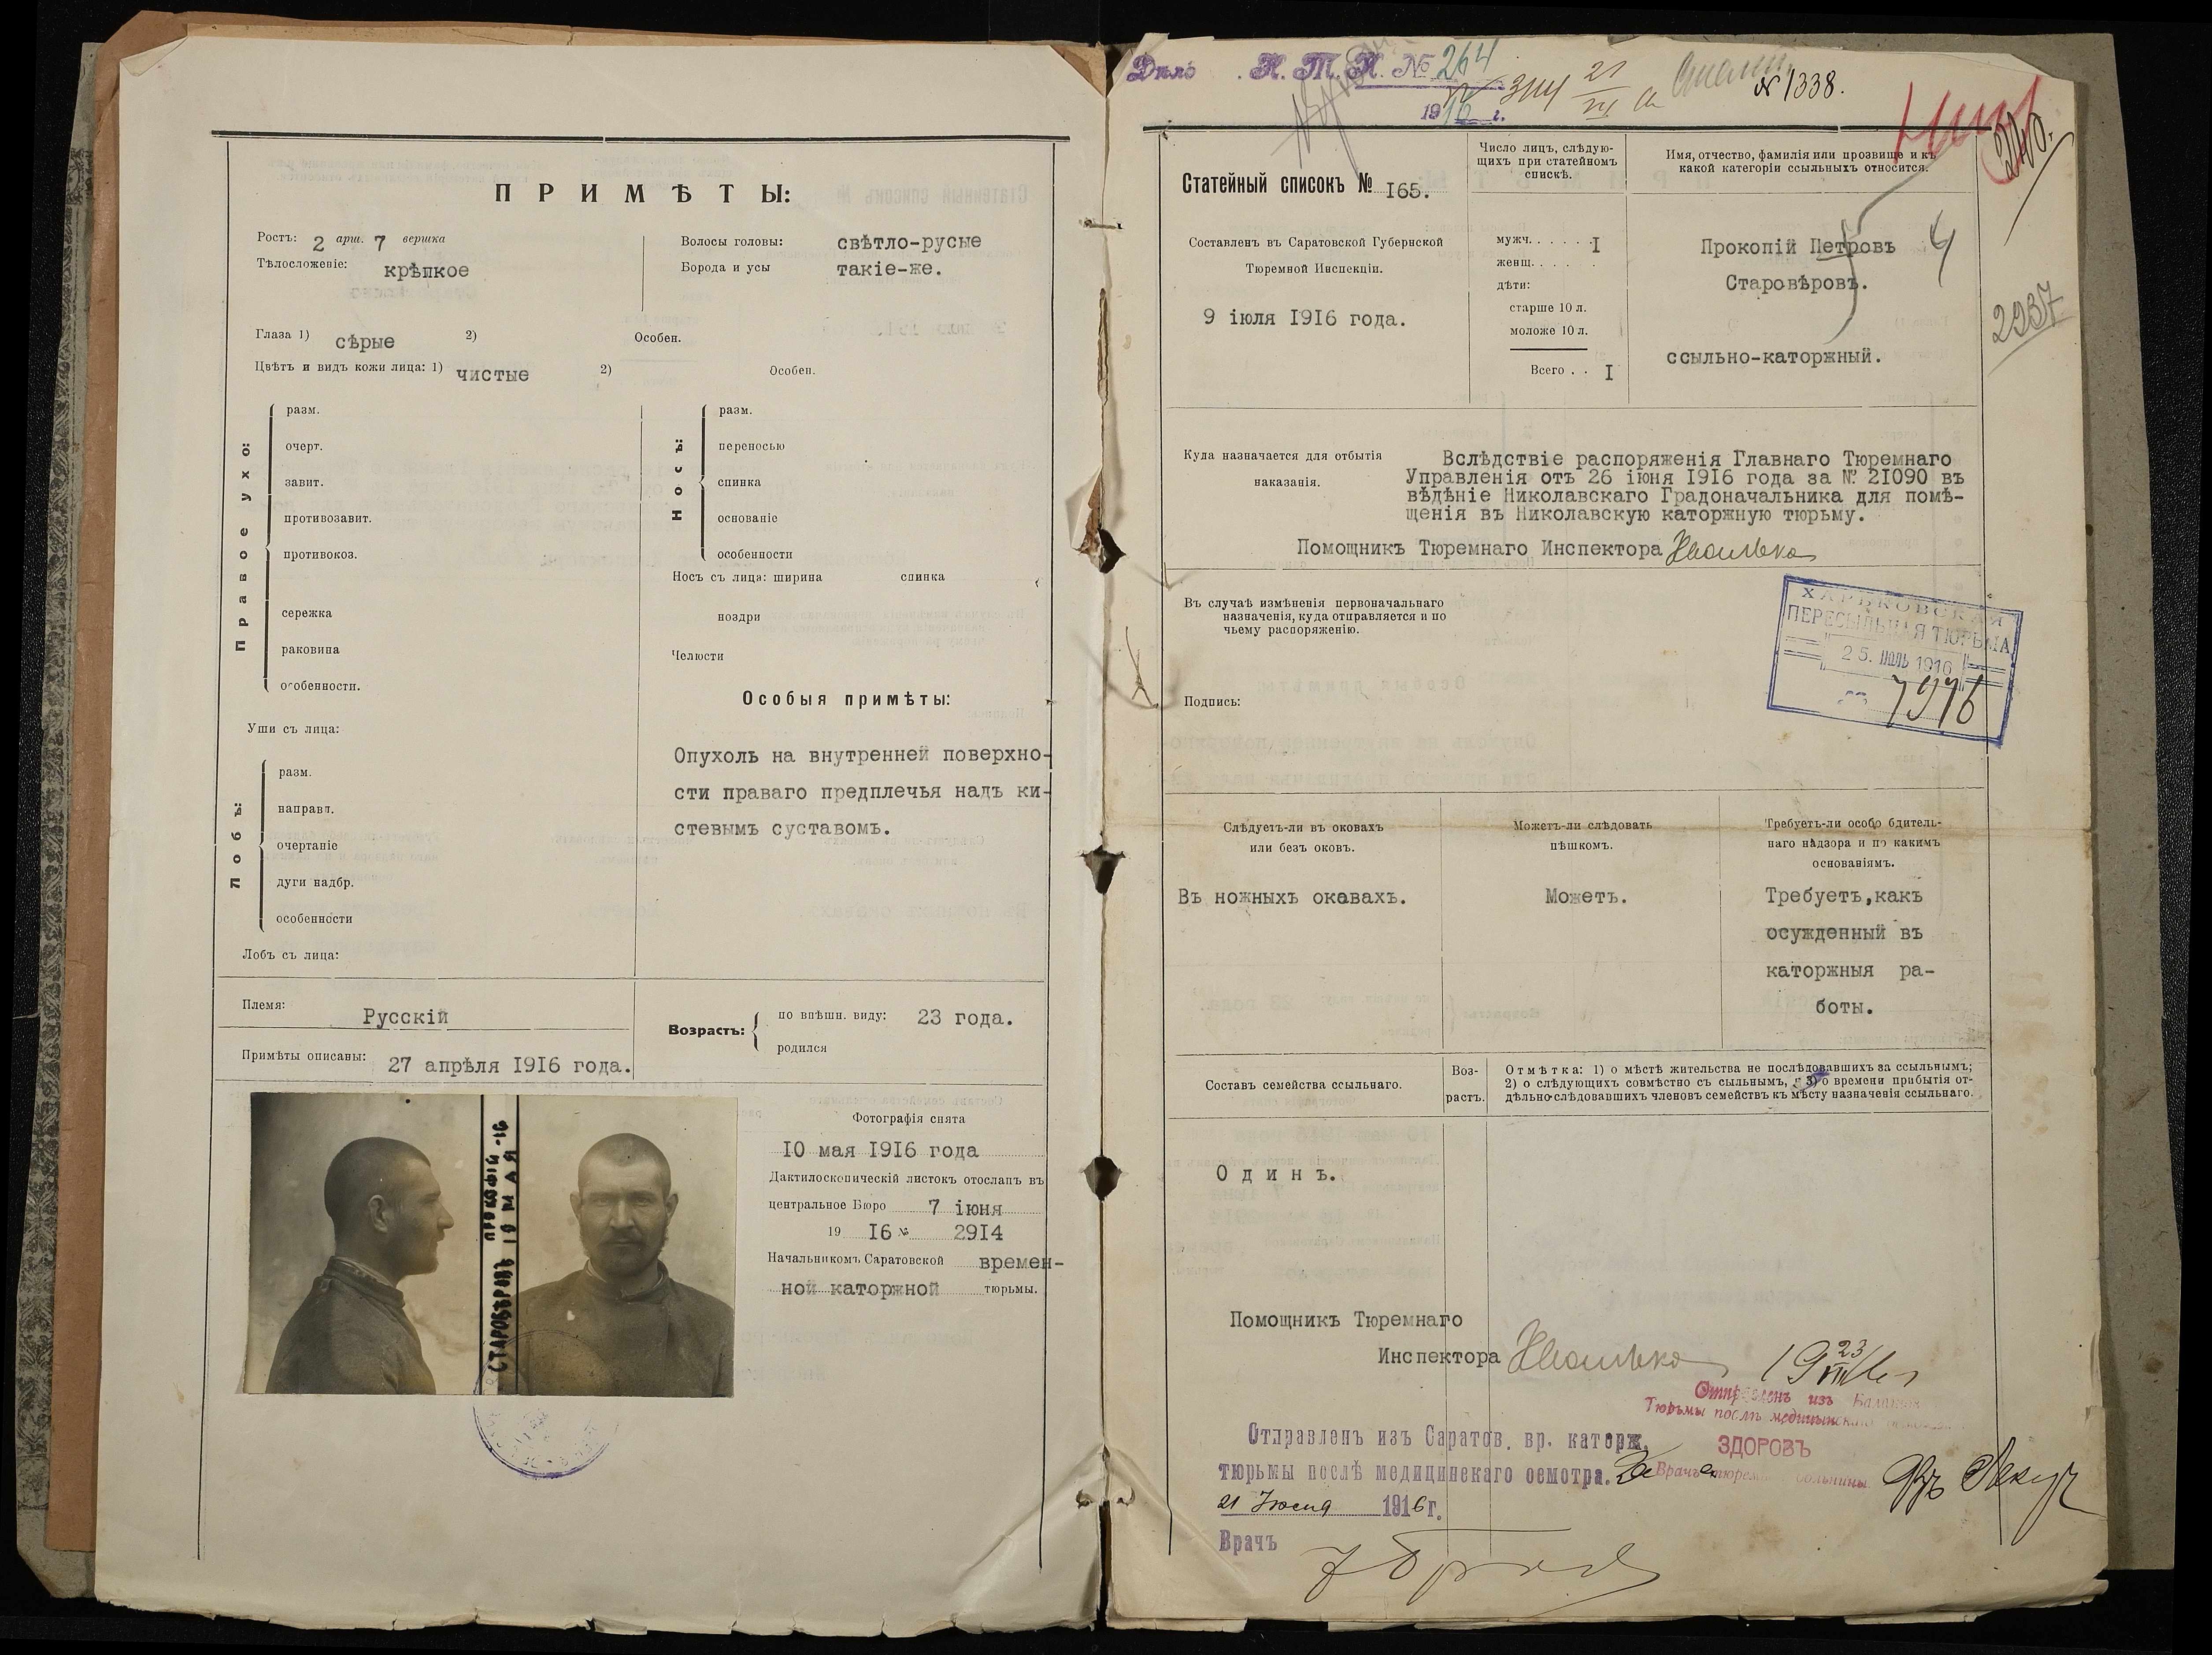 П Р И М Ѣ Т Ы:
Ростъ: 2 арш. 7 вершка
Тѣлосложеніе: крѣпкое
Волосы головы: свѣтло-русые
Борода и усы такіе-же.
Глаза 1) сѣрые 2) Особен.
Цвѣтъ и видъ кожи лица: 1) чистые 2) Особен.
Правое ухо:
разм.
очерт.
завит.
противозавит.
противокоз.
сережка
раковина
особенности.
Уши съ лица:
Лобъ:
разм.
направл.
очертаніе
дуги надбр.
особенности
Лобъ съ лица:
Носъ:
разм.
переносью
спинка
основаніе
особенности
Носъ съ лица: ширина спинка
ноздри
Челюсти
Особыя примѣты:
Опухоль на внутренней поверхно-
сти праваго предплечья надъ ки-
стевымъ суставомъ.
Племя: Русскій
Примѣты описаны: 27 апрѣля 1916 года.
Возрастъ:
по внѣшн. виду: 23 года.
родился
СТАРОВѢРОВЪ ПРОКОФІЙ
10 МАЯ -16
Фотографія снята
10 мая 1916 года
Дактилоскопическій листокъ отосланъ въ
центральное Бюро 7 іюня
19 16 № 2914
Начальникомъ Саратовской времен-
ной каторжной тюрьмы.
Дѣло Н. Т. К. № 264
1916 г.
№ 1338.
240.
4
2937
Статейный списокъ № I65.
Составленъ въ Саратовской Губернской
Тюремной Инспекціи.
9 іюля 1916 года.
Число лицъ, слѣдую-
щихъ при статейномъ
спискѣ.
мужч. . . . . . I
женщ. . . . . .
дѣти:
старше 10 л.
моложе 10 л.
Всего . . I
Имя, отчество, фамилія или прозвище и къ
какой категоріи ссыльныхъ относится.
Прокопій Петровъ
Старовѣровъ.
ссыльно-каторжный.
Куда назначается для отбытія
наказанія.
Вслѣдствіе распоряженія Главнаго Тюремнаго
Управленія отъ 26 іюня 1916 года за № 21090 въ
вѣдѣніе Николавскаго Градоначальника для помѣ-
щенія въ Николавскую каторжную тюрьму.
Помощникъ Тюремнаго Инспектора
Въ случаѣ измѣненія первоначальнаго
назначенія, куда отправляется и по
чьему распоряженію.
Подпись:
ХАРЬКОВСКАЯ
ПЕРЕСЫЛЬНАЯ ТЮРЬМА
25. ІЮЛЬ 1916
7976
Слѣдуетъ-ли въ оковахъ
или безъ оковъ.
Въ ножныхъ окавахъ.
Можетъ-ли слѣдовать
пѣшкомъ.
Можетъ.
Требуетъ-ли особо бдитель-
наго надзора и по какимъ
основаніямъ.
Требуетъ,какъ
осужденный въ
каторжныя ра-
боты.
Составъ семейства ссыльнаго.
Воз-
растъ.
Отмѣтка: 1) о мѣстѣ жительства не послѣдовавшихъ за ссыльнымъ;
2) о слѣдующихъ совмѣстно съ сыльнымъ, и 3) о времени прибытія от-
дѣльно-слѣдовавшихъ членовъ семействъ къ мѣсту назначенія ссыльнаго.
О д и н ъ.
Помощникъ Тюремнаго
Инспектора
Отправленъ изъ
Тюрьмы послѣ медицинскаго
ЗДОРОВЪ
Врачъ тюрем. больницы
Отправленъ изъ Саратов. вр. каторж.
тюрьмы послѣ медицинскаго осмотра.
21 1916 г.
Врачъ